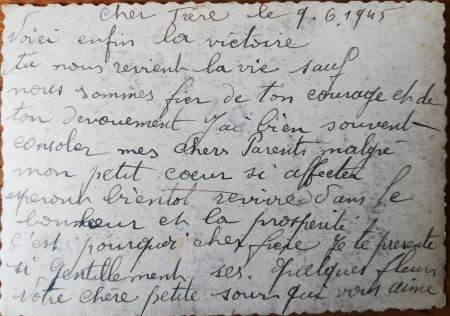 cher Frère le 9.6.1945
Voici enfin la victoire
tu nous revient la vie sauf
nous sommes fier de ton courage et de
ton devouement J'ai bien souvent
consoler mes chers Parents malgré
mon petit coeur si affecter
esperont bientot revivre dans le
bonheur et la prosperité
c'est pourquoi cher frère Je te presente
si gentillement ses quelques fleurs
Votre chère petite sour qui vous aime